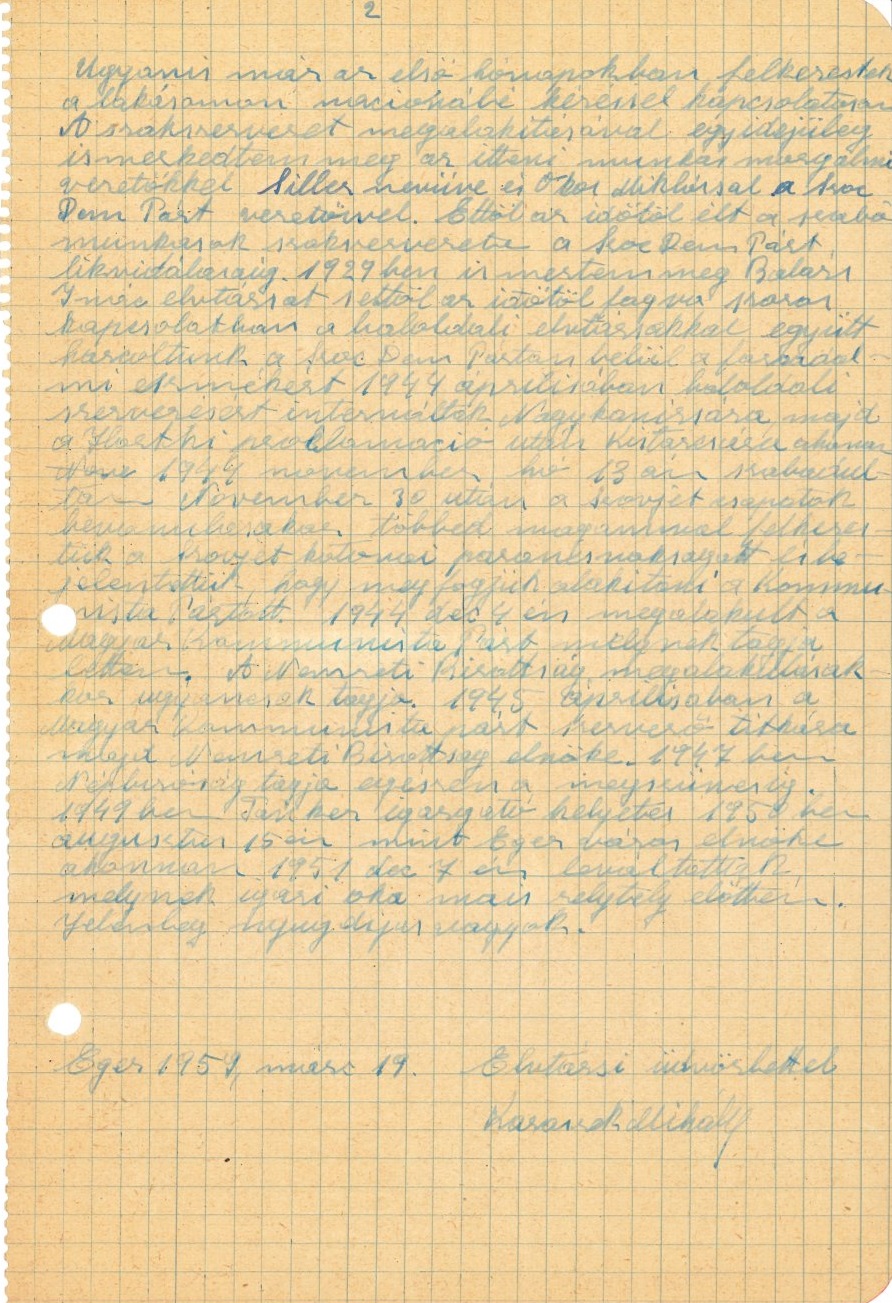 2
Ugyanis már az első hónapokban felkerestek
a lakásomon nacionálé kéréssel kapcsolatosan
A szakszervezet megalakitásával egyidejüleg
ismerkedtem meg az itteni munkás mozgalmi
vezetőkkel Siller nevüvel és Okos Miklóssal a Szoc
Dem Párt vezetőivel. Ettöl az időtöl élt a szabó
munkások szakszervezete a Szoc Dem Párt
likvidálásáig. 1929 ben ismertem meg Balázs
Imre elvtársat s ettöl az időtöl fogva szoros
kapcsolatban a baloldali elvtársakkal együtt
harcoltunk a Szoc Dem Párton belül a forradal-
mi eszmékért 1944 áprilisában baloldali
szervezésért internálták Nagykanizsára, majd
a Horthi proclamació után Kistarcsára ahonan
1944 november hó 13 án szabadul-
tam November 30 után a Szovjet csapatok
bevonulásakor többed magammal felkeres-
tük a szovjet katonai parancsnokságot és be-
jelentettük, hogy meg fogjuk alakitani a Kommu
nista Pártot. 1944 dec 4 én megalakult a
Magyar Kommunista Párt melynek tagja
lettem. A Nemzeti Bizottság megalakulásak-
kor ugyancsak tagja. 1945 áprilisában a
Magyar Kommunista párt szervező titkára
majd Nemzeti Bizottság elnöke. 1947 ben
Népbiróság tagja egészen a megszünésig.
1949 ben igazgató helyetes 1950 ben
augusztus 15 én mint Eger város elnöke
ahonnan 1951 dec 7 én leváltottak,
melynek igazi oka mais rejtély előttem.
Jelenleg nyugdijas vagyok.
Eger 1959, márc 19. Elvtársi üdvözlettel
Mihály